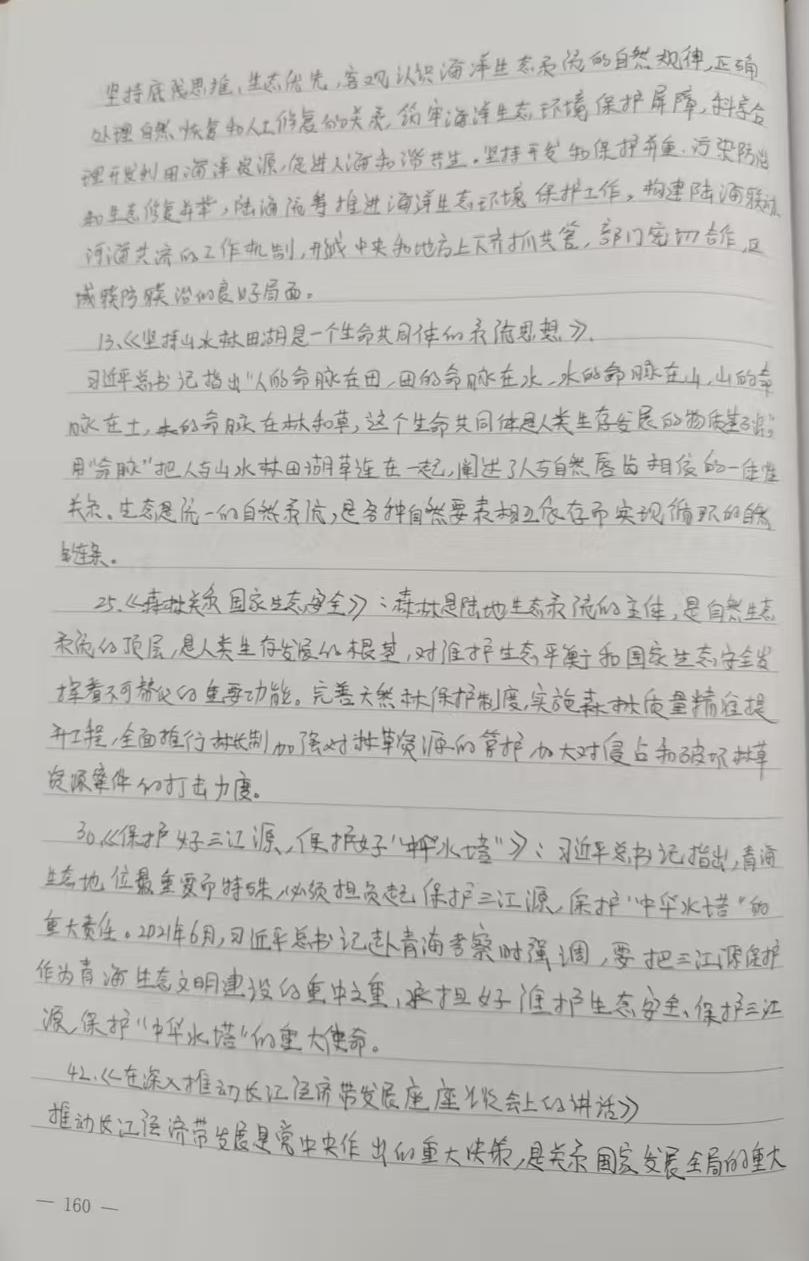 坚持底线思维、生态优先,客观认识海洋生态系统的自然规律,正确
处理自然恢复和人工修复的关系,筑牢海洋生态环境保护屏障,科学合
理开发利用海洋资源,促进人海和谐共生。坚持开发和保护并重、污染防治
和生态修复并举,陆海统筹推进海洋生态环境保护工作,构建陆海联动、
河海共济的工作机制,形成中央和地方上下齐抓共管,部门密切合作,区
域联防联治的良好局面。
13、《坚持山水林田湖是一个生命共同体的系统思想》、
习近平总书记指出“人的命脉在田,田的命脉在水,水的命脉在山,山的命
脉在土,土的命脉在林和草,这个生命共同体是人类生存发展的物质基础”。
用“命脉”把人与山水林田湖草连在一起,阐述了人与自然唇齿相依的一体性
关系。生态是统一的自然系统,是各种自然要素相互依存而实现循环的自然
链条。
25.《森林关系国家生态安全》:森林是陆地生态系统的主体,是自然生态
系统的顶层,是人类生存发展的根基,对维护生态平衡和国家生态安全发
挥着不可替代的重要功能。完善天然林保护制度,实施森林质量精准提
升工程,全面推行林长制,加强对林草资源的管护,加大对侵占和破坏林草
资源案件的打击力度。
30.《保护好三江源,保护好“中华水塔”》:习近平总书记指出,青海
生态地位最重要而特殊,必须担负起保护三江源,保护“中华水塔”的
重大责任。2021年6月,习近平总书记赴青海考察时强调,要把三江源保护
作为青海生态文明建设的重中之重,承担好维护生态安全、保护三江
源,保护“中华水塔”的重大使命。
42.《在深入推动长江经济带发展座座谈会上的讲话》
推动长江经济带发展是党中央作出的重大决策,是关系国家发展全局的重大
— 160 —